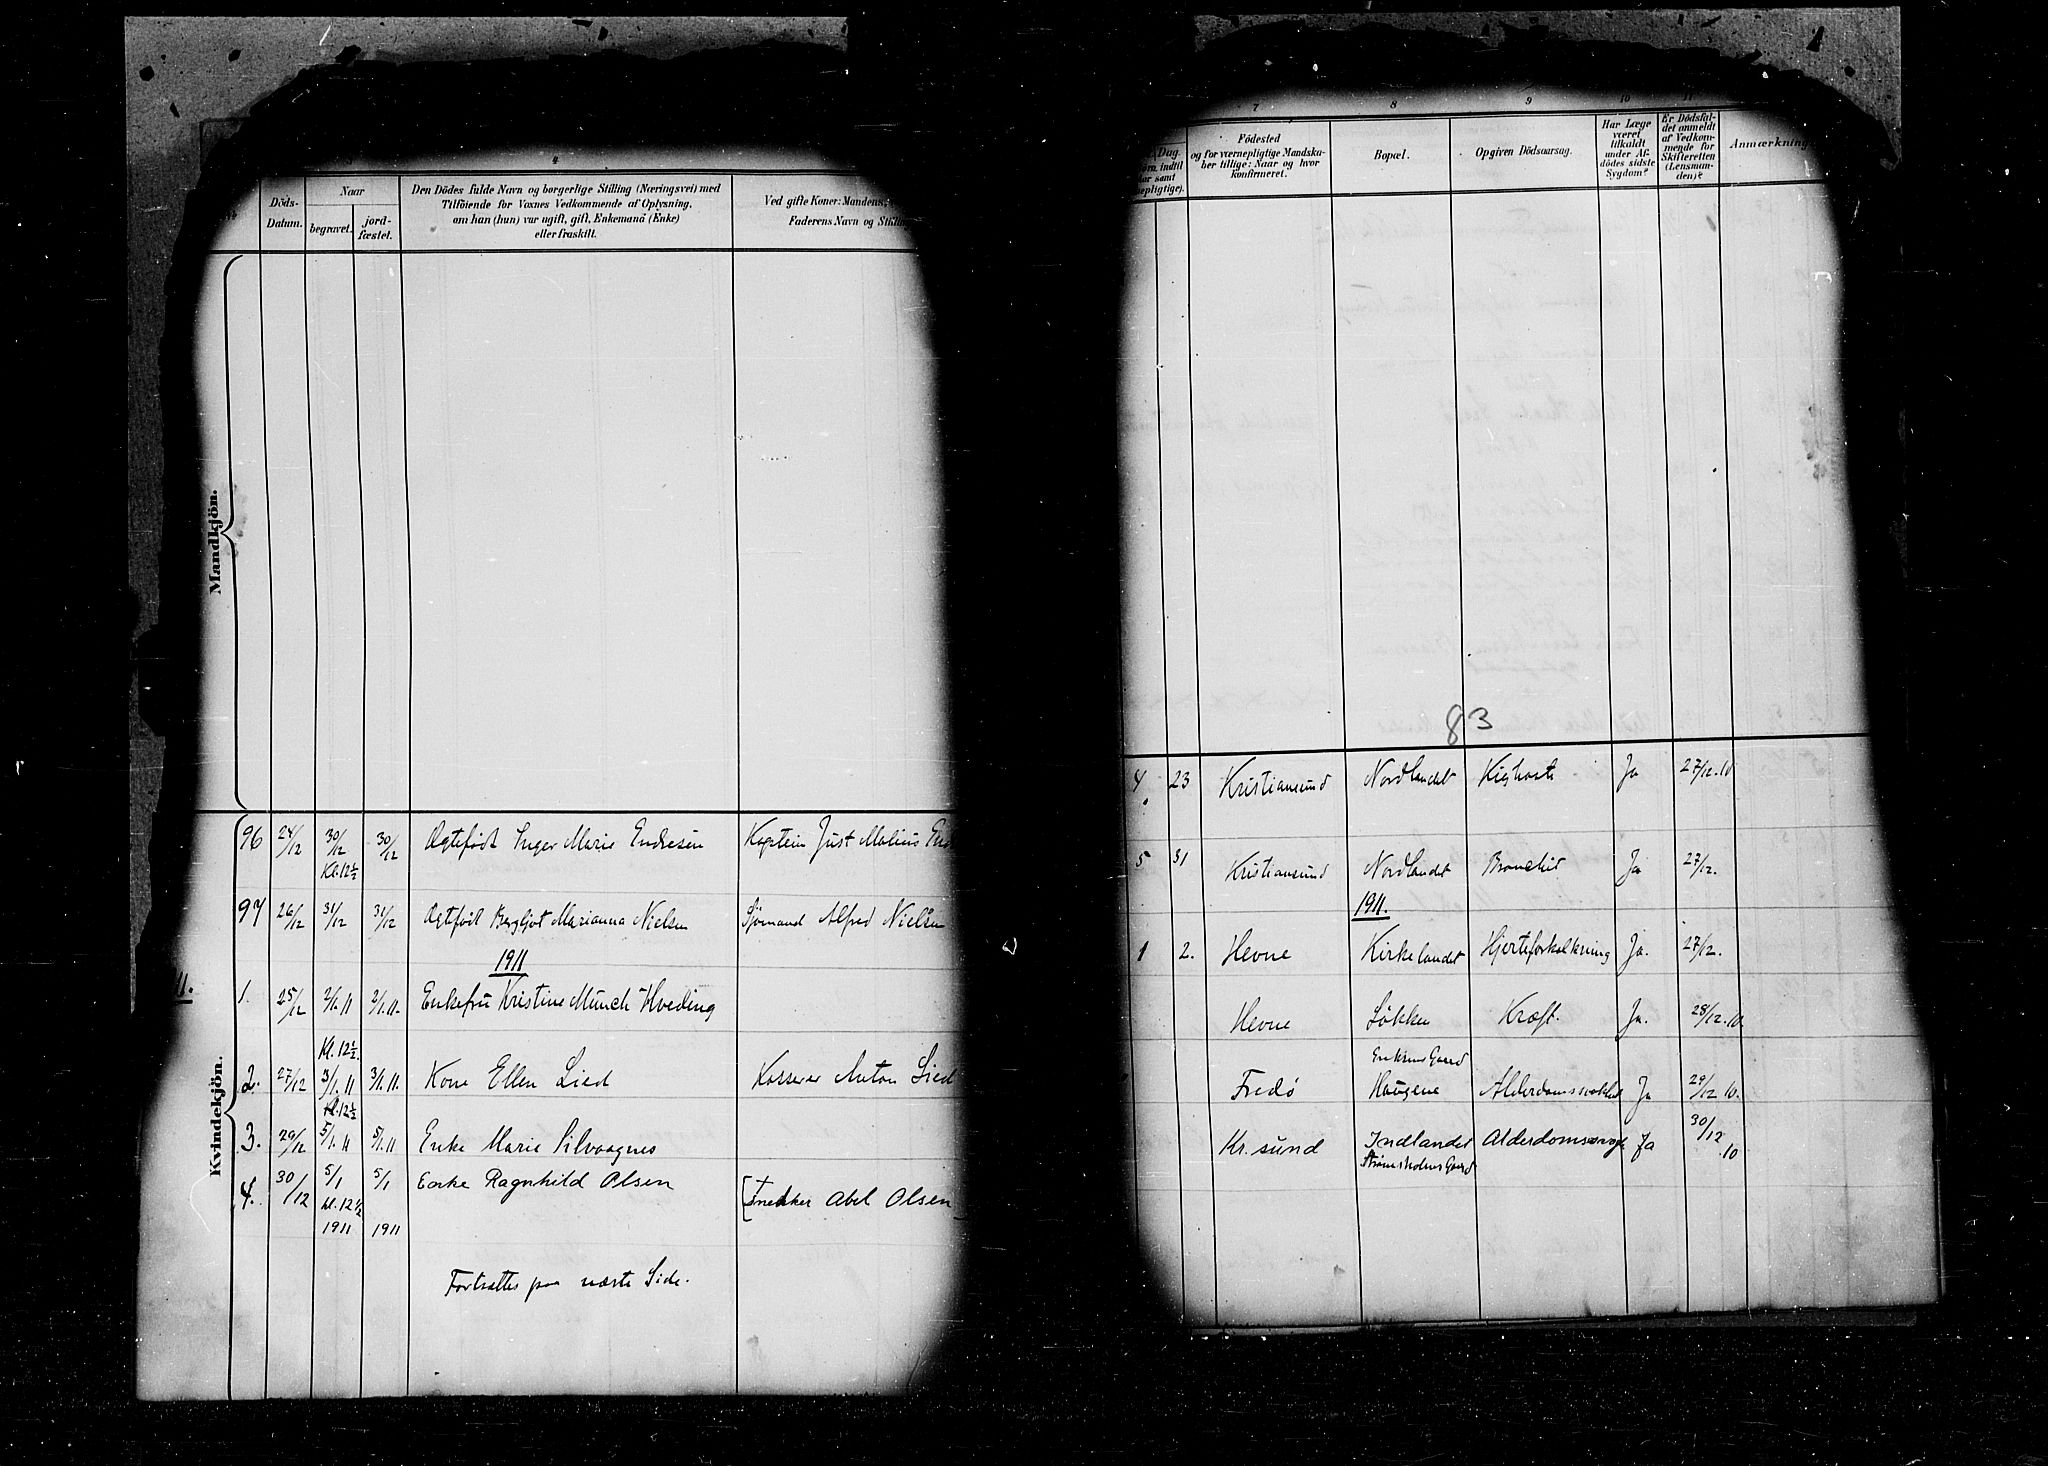 3
4
Döds-
Datum.
Naar
begravet.
jord-
fæstet.
Den Dödes fulde Navn og borgerlige Stilling (Næringsvei) med
Tilföiende for Voxnes Vedkommende af Oplysning,
om han (hun) var ugift, gift, Enkemand (Enke)
eller fraskilt.
Ved gifte Koner: Mandens,
Faderens Navn og Stilling
Mandkjön.
96 24/12 30/12 30/12 Ægtefødt Inger Marie Endresen Kaptein Just Malius
Kl. 12½
97 26/12 31/12 31/12 Ægtefødt Bergljot Marianna Nielsen Sjømand Alfred Nielsen
1911
11.
1. 25/12 2/1.11 2/1.11. Enkefru Kristine Münch Hveding
Kl. 12½.
2. 27/12 3/1.11 3/1.11. Kone Ellen Lied Kasserer Anton Lied
Kl. 12½
3. 29/12 5/1.11 5/1.11 Enke Marie Silvaagnes
4. 30/12 5/1 5/1 Enke Ragnhild Olsen [Snekker Abel Olsen
kl. 12½
1911 1911
Fortsættes paa næste Side.
Kvindekjön.
7
8
9
10
11
Dag.
Födested
og for værnepligtige Mandska-
ber tillige: Naar og hvor
konfirmeret.
Bopæl.
Opgiven Dödsaarsag.
Har Læge
været
tilkaldt
under Af-
dödes sidste
Sygdom?
Er Dödsfal-
det anmeldt
af Vedkom-
mende for
Skifteretten
(Lensman-
den)?
Anmærkning
83
4 23 Kristiansund Nordlandet Kighoste Ja 27/12.10
5 31 Kristiansund Nordlandet Bronchit Ja 27/12.
1911.
1 2. Hevne Kirkelandet Hjerteforkalkning Ja. 27/12.
Hevne Løkken Kræft. Ja. 28/12.10.
Fredø Haugene Ja 29/12 10.
Kr. sund Indlandet Ja 30/12.10
Strømsholms Gaard